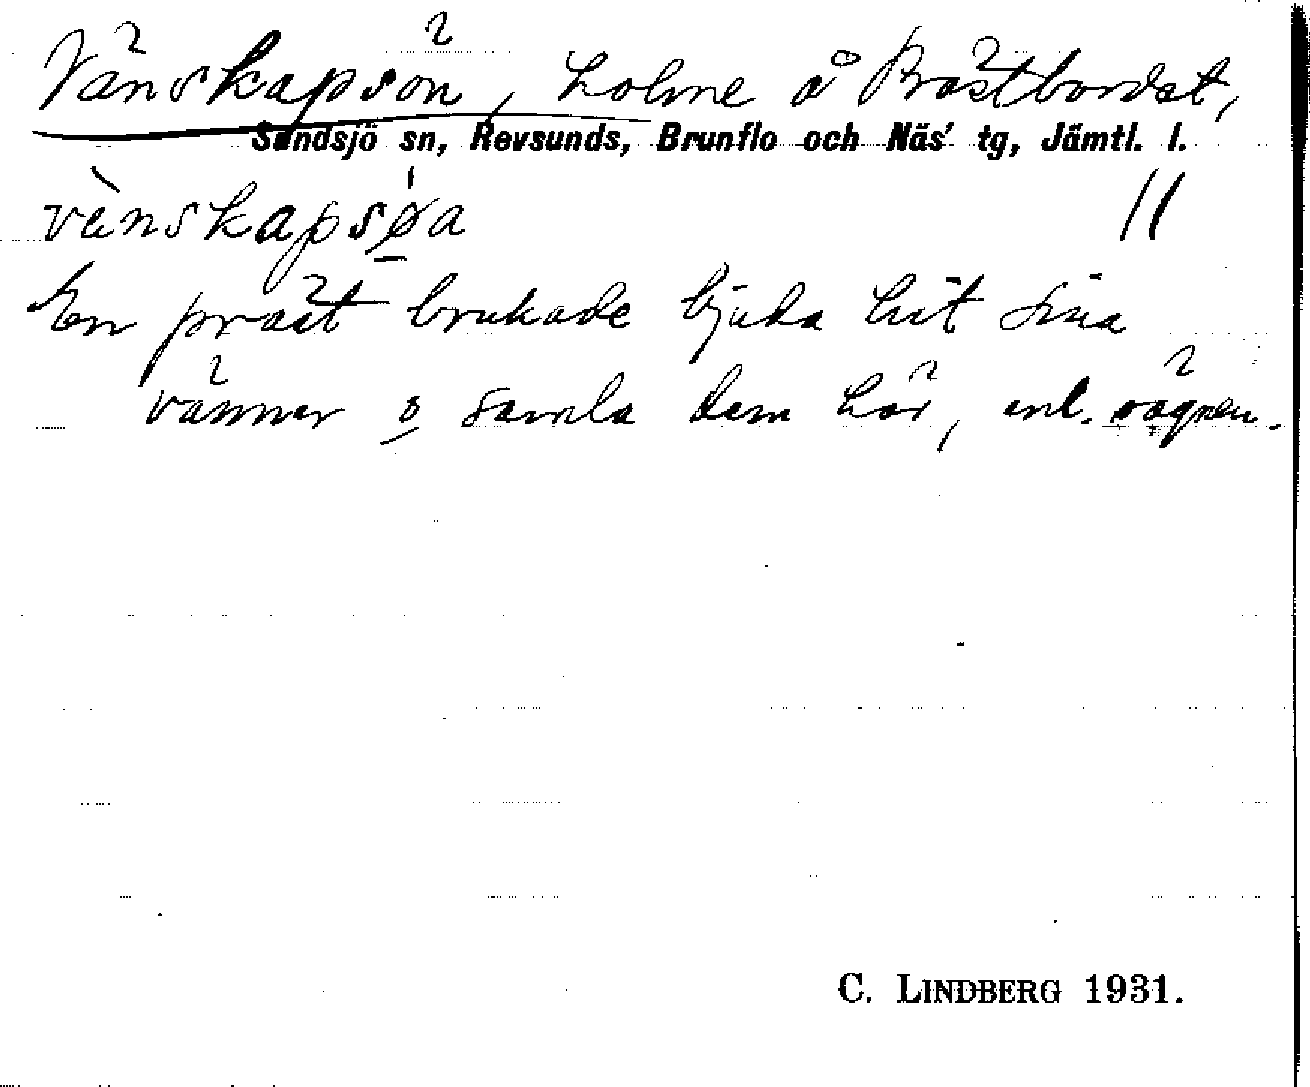 Vänskapsön, holme å Prästbordet,
Sundsjö sn, Revsunds, Brunflo och Näs' tg, Jämtl. l.
vènskapsøa 11
En präst brukade bjuda hit sina
vänner o samla dem här, enl. sägnen.
C. LINDBERG 1931.